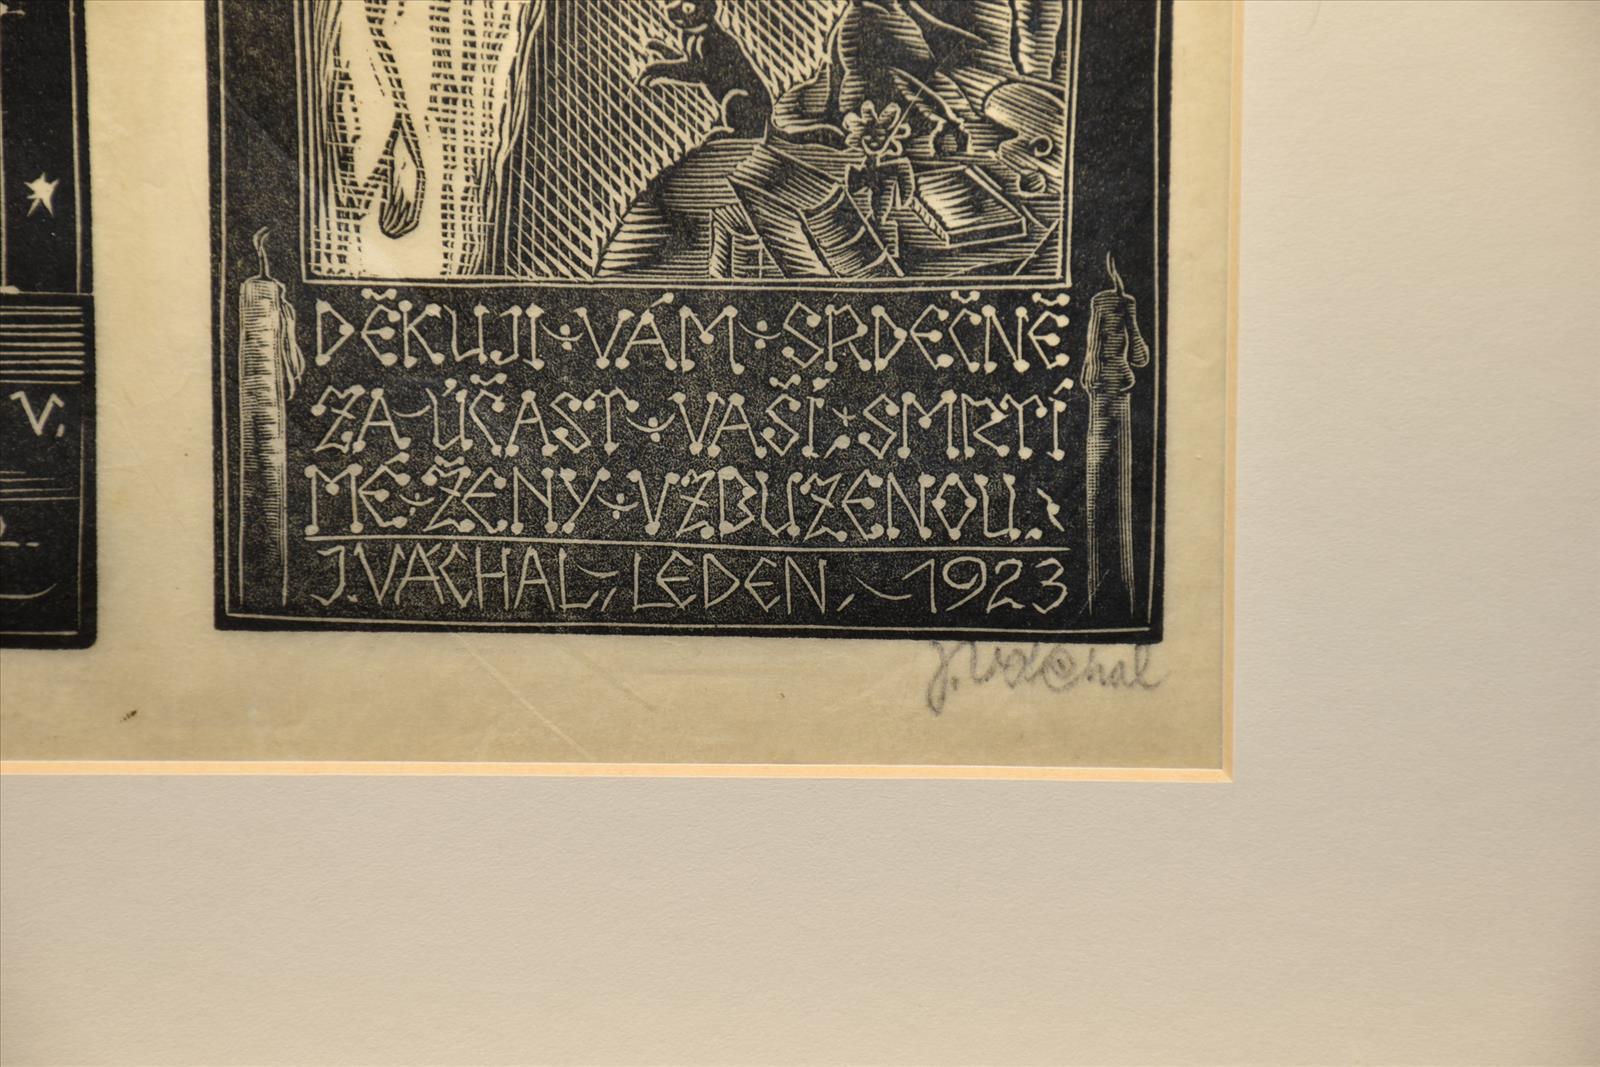 DĚKUJI VÁM SRDEČNĚ
ZA ÚČAST VAŠÍ, SMRTÍ
MÉ ŽENY VZBUZENOU.
J. VÁCHAL, LEDEN, 1923
J. Váchal
V.